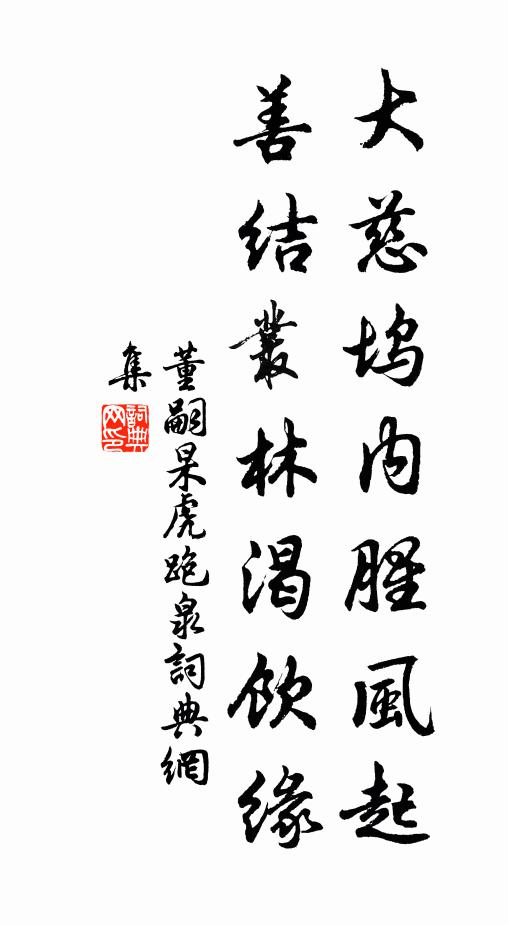 大慈塢内腥風起
善结叢林渴飲緣
董嗣杲虎跑泉詞典網
集
詞典
网印